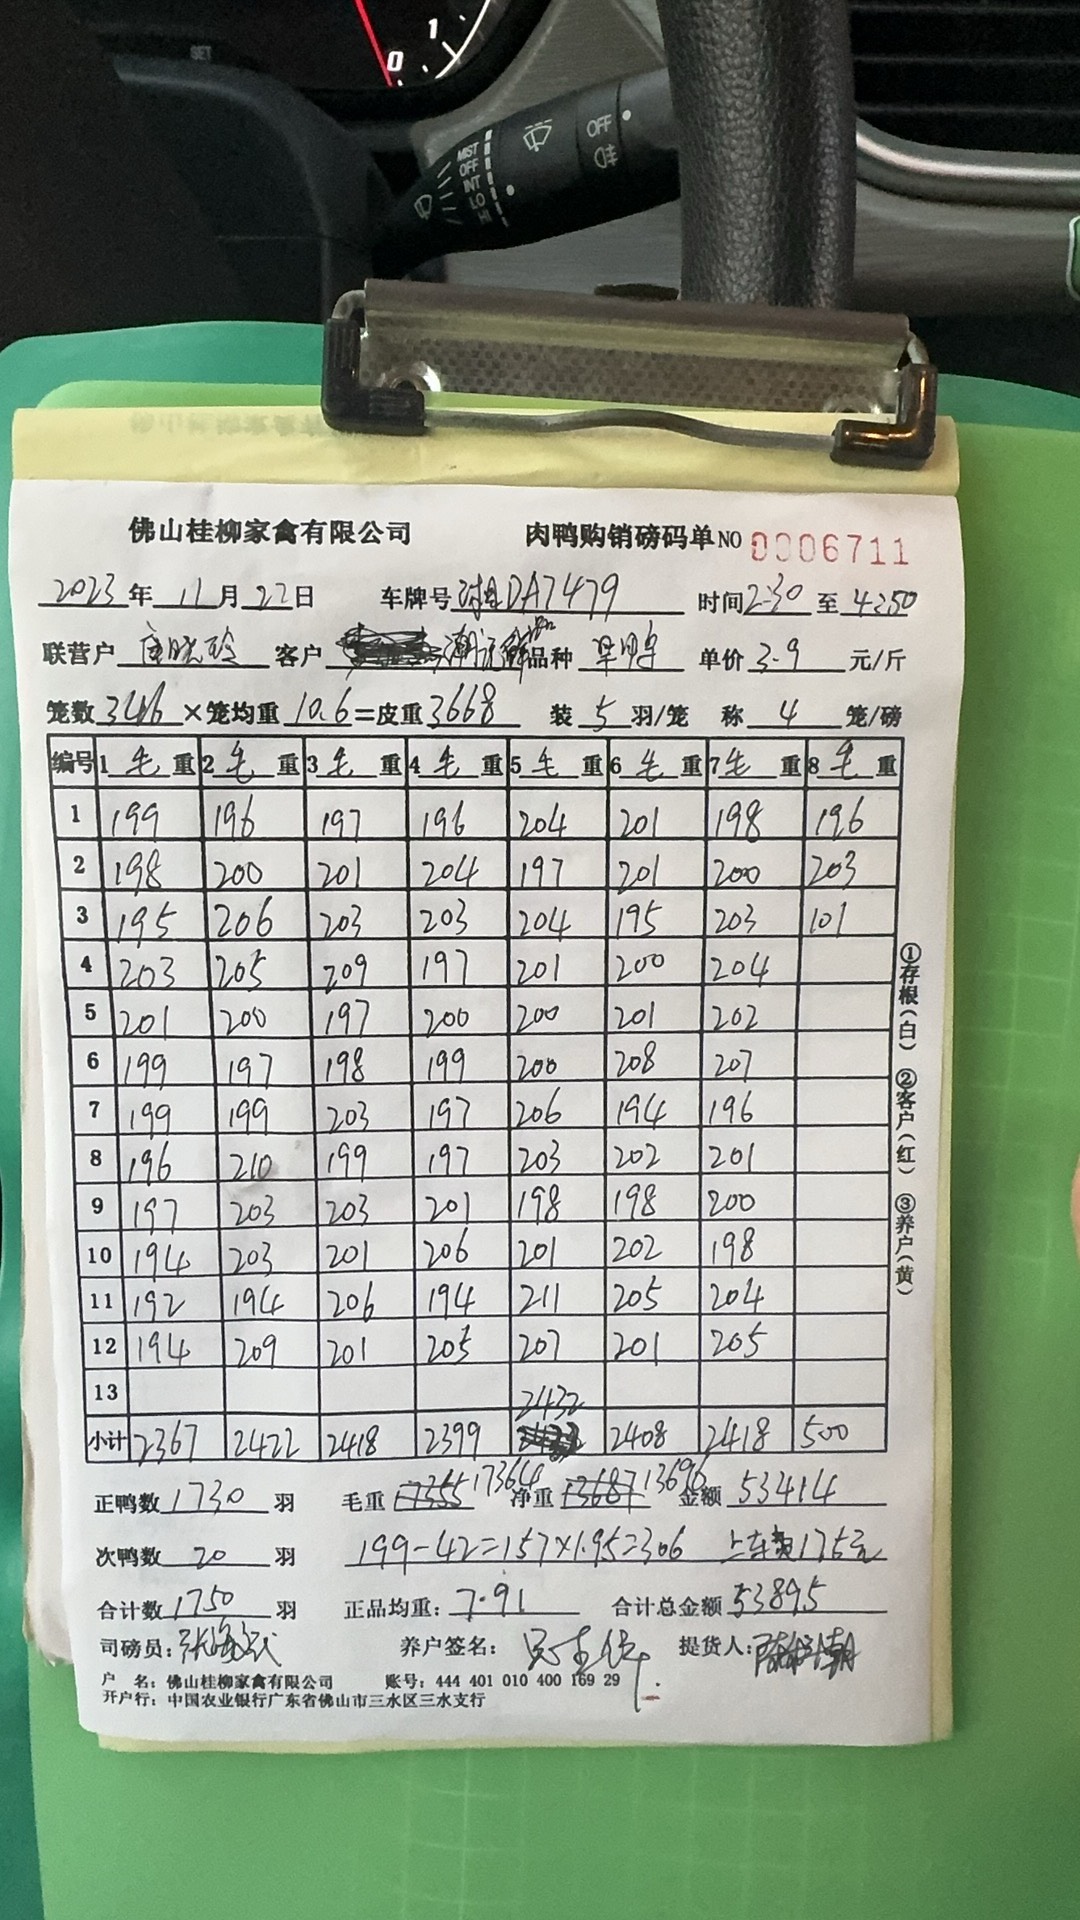 SET
0 1
MIST
OFF
INT
LO
HI
OFF
佛山桂柳家禽有限公司 肉鸭购销磅码单 NO 0006711
2023年 11月 22日 车牌号 DA7479 时间 2:30 至 4:50
联营户 唐晓玲 客户 潮记 品种 单价 3.9 元/斤
笼数 346 ×笼均重 10.6 =皮重 3668 装 5 羽/笼 称 4 笼/磅
编号 1 毛 重 2 毛 重 3 毛 重 4 毛 重 5 毛 重 6 毛 重 7 毛 重 8 毛 重
1 199 196 197 196 204 201 198 196
2 198 200 201 204 197 201 200 203
3 195 206 203 203 204 195 203 101
4 203 205 209 197 201 200 204
5 201 200 197 200 200 201 202
6 199 197 198 199 200 208 207
7 199 199 203 197 206 194 196
8 196 210 199 197 203 202 201
9 197 203 203 201 198 198 200
10 194 203 201 206 201 202 198
11 192 194 206 194 211 205 204
12 194 209 201 205 207 201 205
13 2432
小计 2367 2422 2418 2399 2408 2418 500
正鸭数 1730 羽 毛重 17355 17364 净重 13687 13696 金额 53414
次鸭数 20 羽 199-42=157×1.95=306 上车费175元
合计数 1750 羽 正品均重: 7.91 合计总金额 53895
司磅员: 养户签名: 提货人:
户 名: 佛山桂柳家禽有限公司 账号: 444 401 010 400 169 29
开户行: 中国农业银行广东省佛山市三水区三水支行
①存根(白) ②客户(红) ③养户(黄)